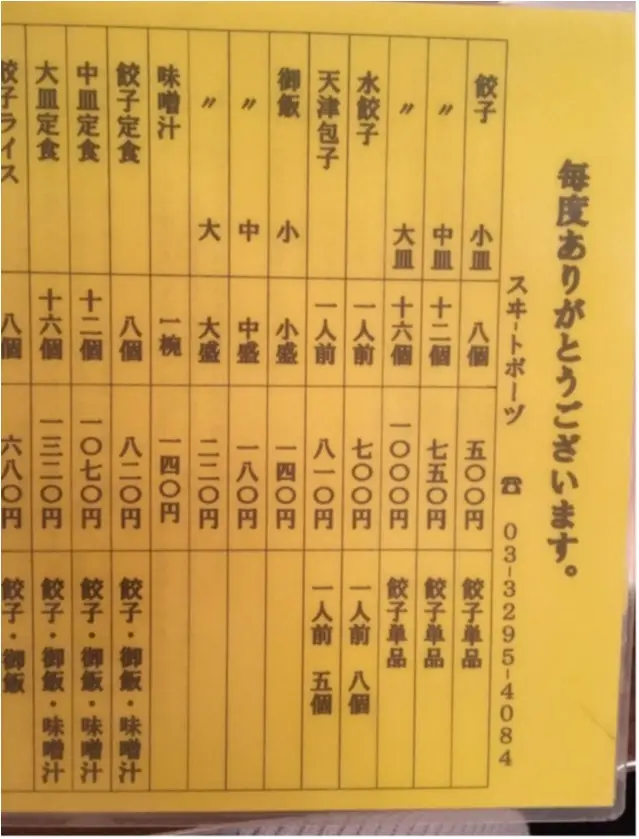 毎度ありがとうございます。
スヰートポーヅ ☎ 03-3295-4084
餃子 小皿 八個 五〇〇円 餃子単品
〃 中皿 十二個 七五〇円 餃子単品
〃 大皿 十六個 一〇〇〇円 餃子単品
水餃子 一人前 七〇〇円 一人前 八個
天津包子 一人前 八一〇円 一人前 五個
御飯 小 小盛 一四〇円
〃 中 中盛 一八〇円
〃 大 大盛 二二〇円
味噌汁 一椀 一四〇円
餃子定食 八個 八二〇円 餃子・御飯・味噌汁
中皿定食 十二個 一〇七〇円 餃子・御飯・味噌汁
大皿定食 十六個 一三二〇円 餃子・御飯・味噌汁
餃子ライス 八個 六八〇円 餃子・御飯